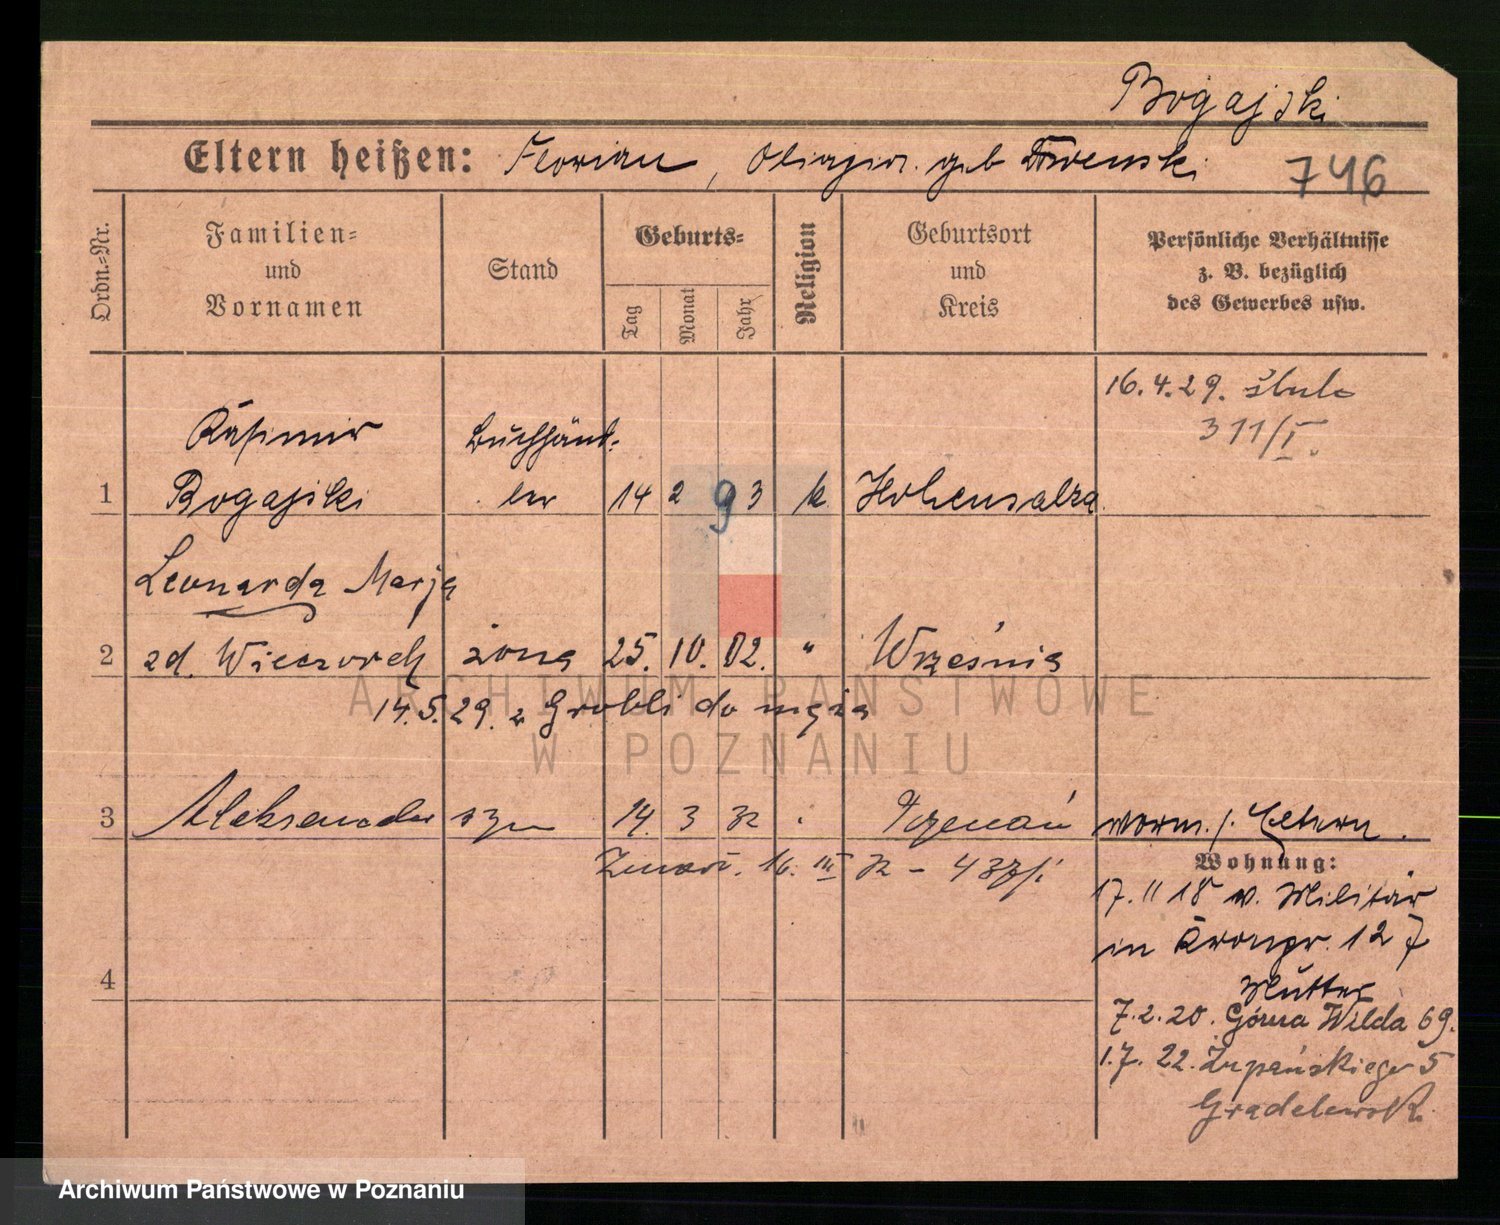 Bogajski
Eltern heißen: Florian, geb
746
Ordn.-Nr.
Familien-
und
Vornamen
Stand
Geburts-
Tag
Monat
Jahr
Religion
Geburtsort
und
Kreis
Persönliche Verhältnisse
z. B. bezüglich
des Gewerbes usw.
16.4.29.
311/I.
Kasimir Buchhänd-
1 Bogajski ler 14 2 93 k. Hohensalza
Leonarda Marja
2 zd. Wieczorek żona 25. 10. 02. " Września
14.5.29. z Grobli do męża
3 Aleksander syn 14. 3 32 Poznań
16. III 32
Wohnung:
17. 11 18 v. Militär
in Kronpr. 127
Mutter
7.2.20. Górna Wilda 69.
1.7. 22. Żupańskiego 5
4
ARCHIWUM PAŃSTWOWE
W POZNANIU
Archiwum Państwowe w Poznaniu